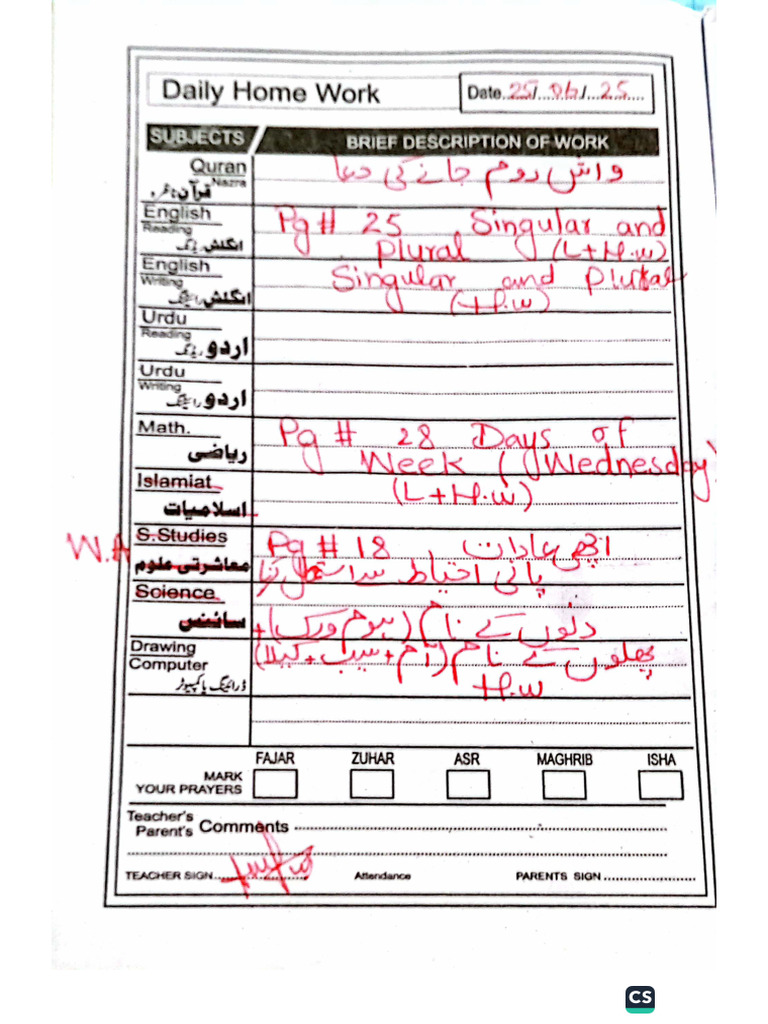 Daily Home Work
Date 25/06/25
SUBJECTS BRIEF DESCRIPTION OF WORK
Quran واش روم جانے کی دعا
Nazra
قرآن ناظرہ
English Pg # 25 Singular and
Reading Plural (L+H.w)
انگلش ریڈنگ
English Singular and Plural
Writing (H.w)
انگلش رائیٹنگ
Urdu
Reading
اردو ریڈنگ
Urdu
Writing
اردو رائیٹنگ
Math. Pg # 28 Days of
ریاضی Week (Wednesday)
Islamiat (L+H.w)
اسلامیات
W.A S.Studies Pg # 18 اچھی عادات
معاشرتی علوم پانی احتیاط سے استعمال کرنا
Science
سائنس دنوں کے نام (ہوم ورک)+
Drawing پھلوں کے نام (آم+سیب+کیلا)
Computer H.w
ڈرائینگ یا کمپیوٹر
FAJAR ZUHAR ASR MAGHRIB ISHA
MARK
YOUR PRAYERS
Teacher's
Parent's Comments
TEACHER SIGN Attendance PARENTS SIGN
CS